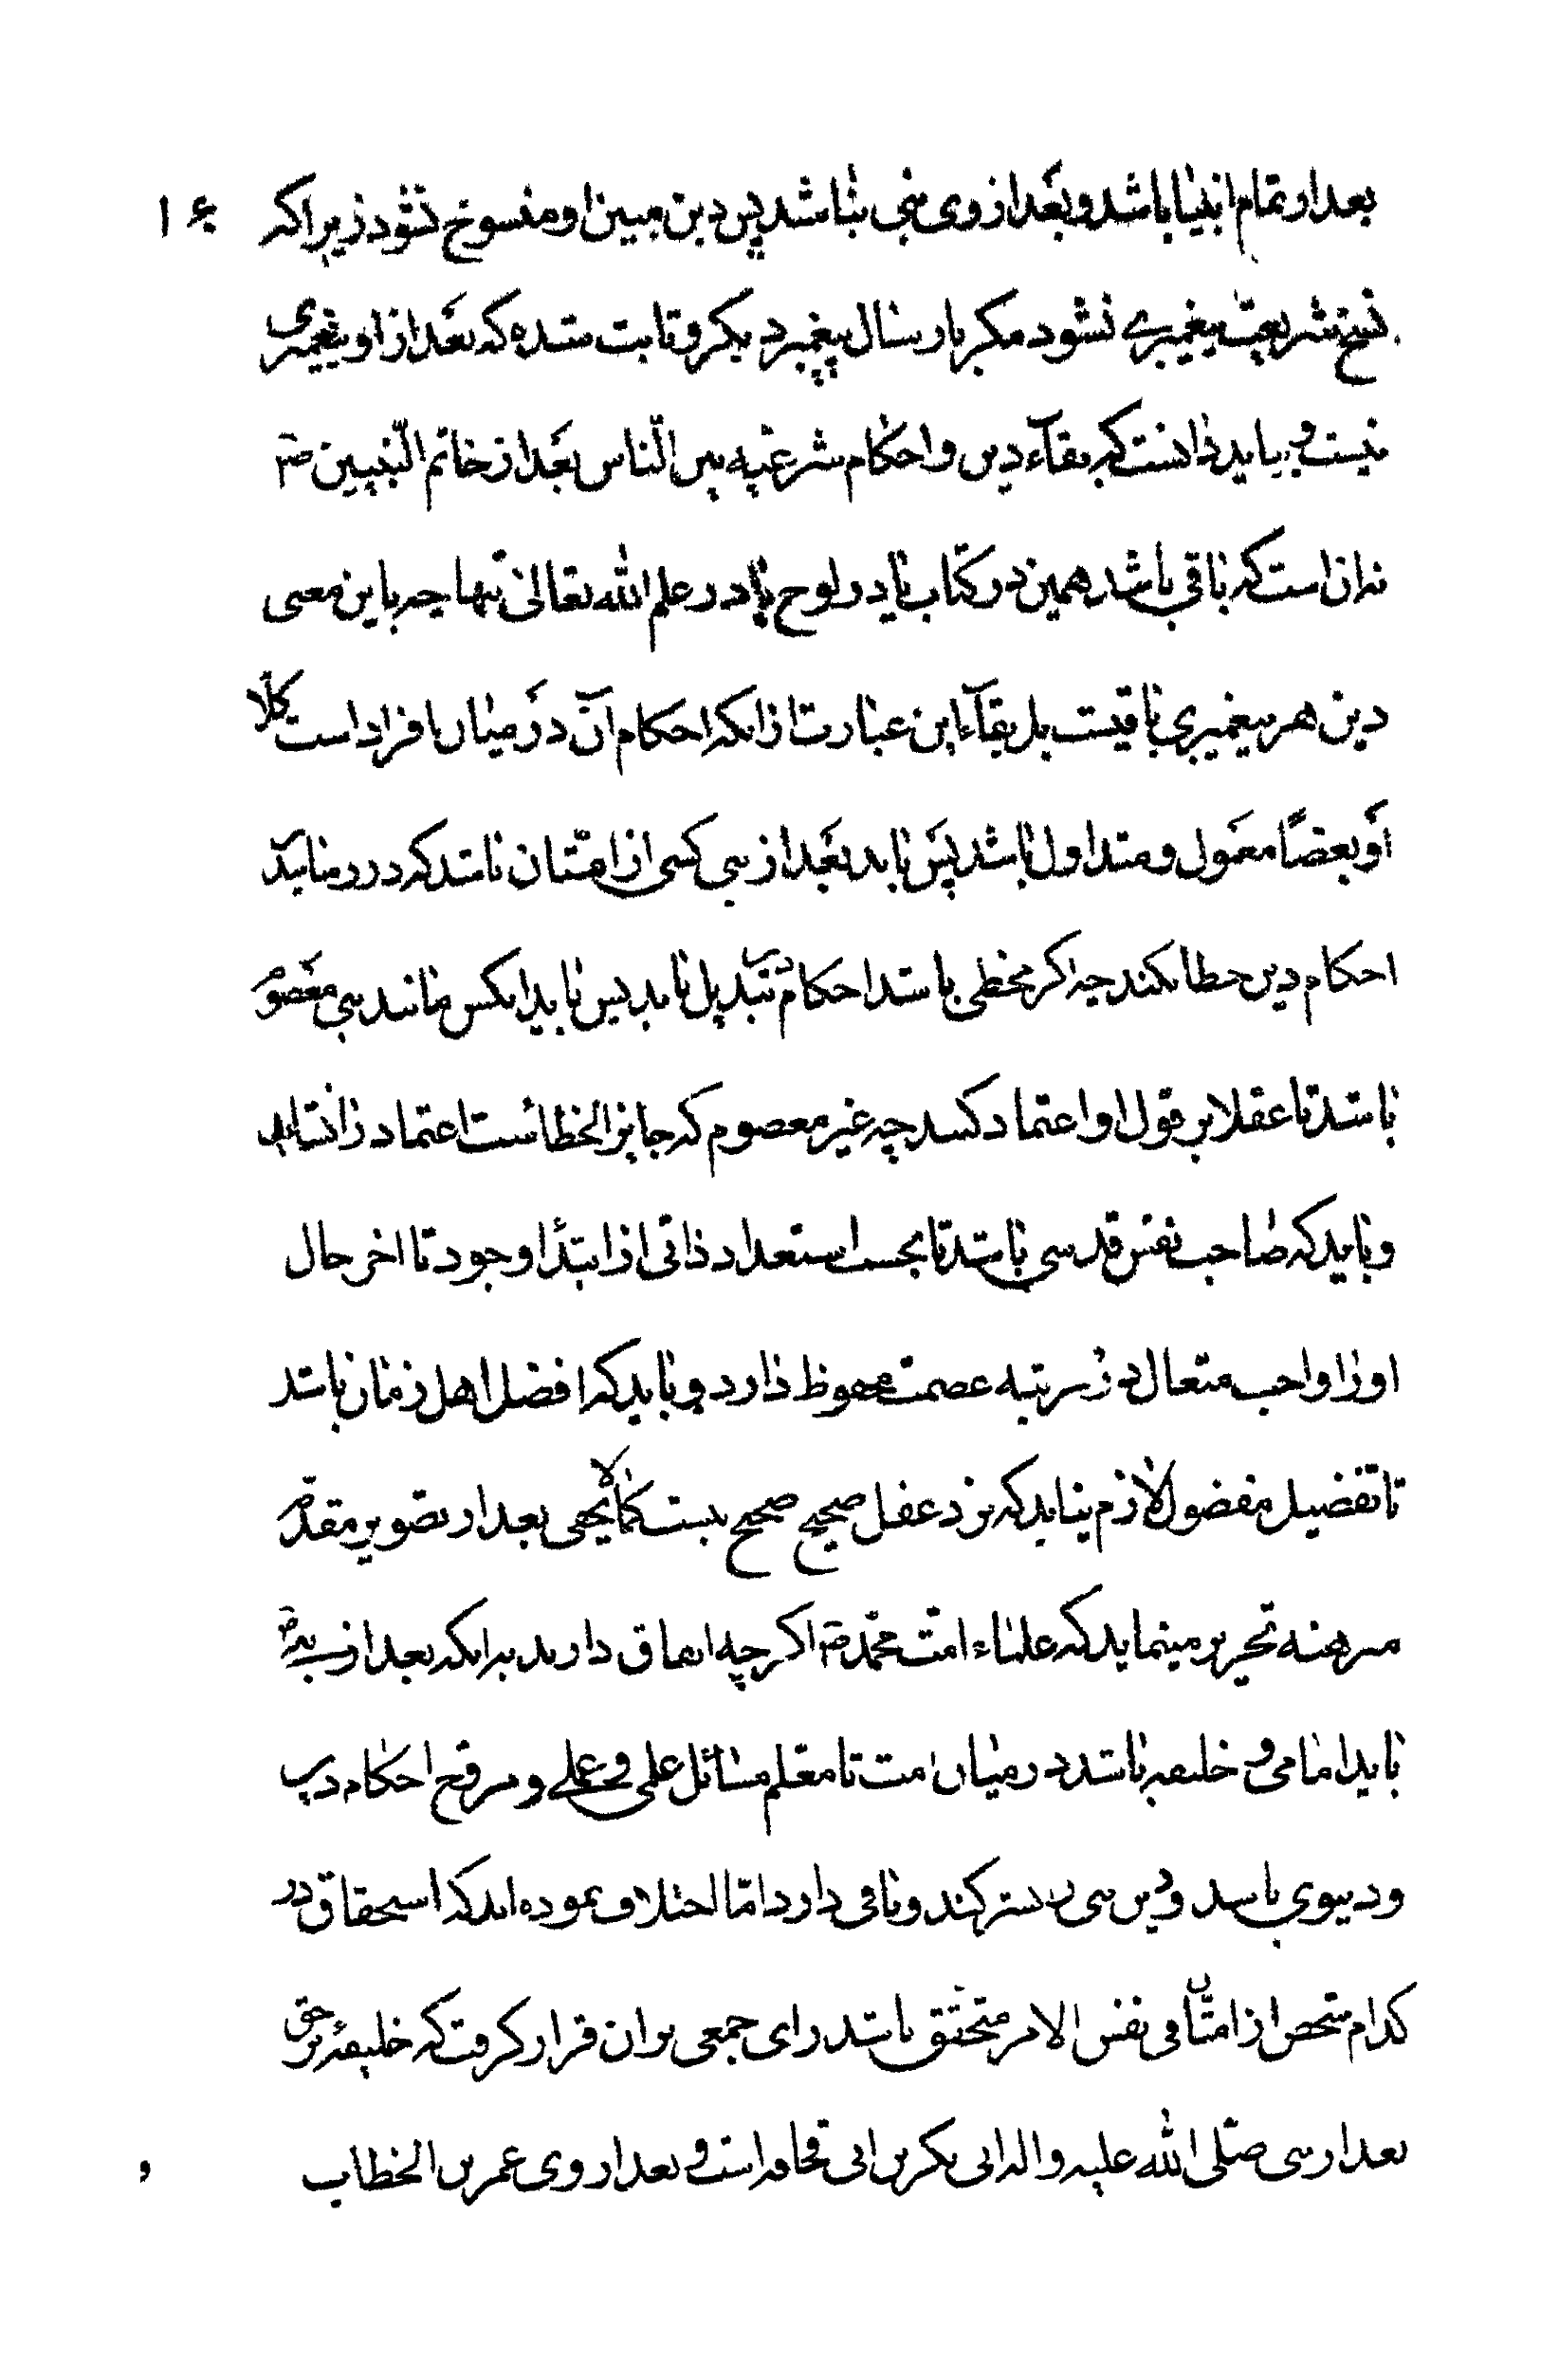 بعد از تمام انبیا باشد و بعد از وی نبی نباشد پس دین مبین او منسوخ نشود زیرا که
نسخ شریعت پیغمبری نشود مکر بارسال پیغمبر دیکر و ثابت شده که بعد از او پیغمبری
نیست و بباید دانست که بقآء دین و احکام شرعیه بین الناس بعد از خاتم النبیین ص
نه ان است که باقی باشد همین در کتاب یا در لوح یا در علم الله تعالی تنها چه باین معنی
دین هر پیغمبری باقیست بل بقآء این عبارت از انکه احکام آن در میان افراد است کلّا
او بعضًا معمول و متداول باشد پس باید بعد از نبی کسی از امتان باشد که در
احکام دین خطا نکند چه اکر مخطی باشد احکام دین تبدیل یابد پس باید انکس مانند نبی معصوم
باشد تا عقلا بر قول او اعتماد کنند چه غیر معصوم که جایز الخطاست اعتماد را نشاید
و باید که صاحب نفس قدسی باشد تا بحسب استعداد ذاتی از ابتدأ وجود تا اخر حال
او را واجب متعال در مرتبه عصمت محفوظ دارد و باید که افضل اهل زمان باشد
تا تفضیل مفضول لازم نیاید که نزد عقل صحیح صحیح نیست کما لا یخفی بعد از تصویر مقدمه
مرهنه تحریر مینماید که علماء امت محمد ص اکرچه اتفاق دارند برانکه بعد از پیغمبر ص
باید امامی و خلیفه باشد در میان امت تا معلم مسائل علمی و عملے و مروج احکام دینی
و دنیوی باشد و دین نبی را نشر کند و باقی دارد امّا اختلاف نموده اند که استحقاق در
کدام شخص از امتان فی نفس الامر متحقق باشد رای جمعی بران قرار کرفت که خلیفهٔ بر حق
بعد از نبی صلی الله علیه و اله ابی بکر بن ابی قحافه است و بعد از وی عمر بن الخطاب